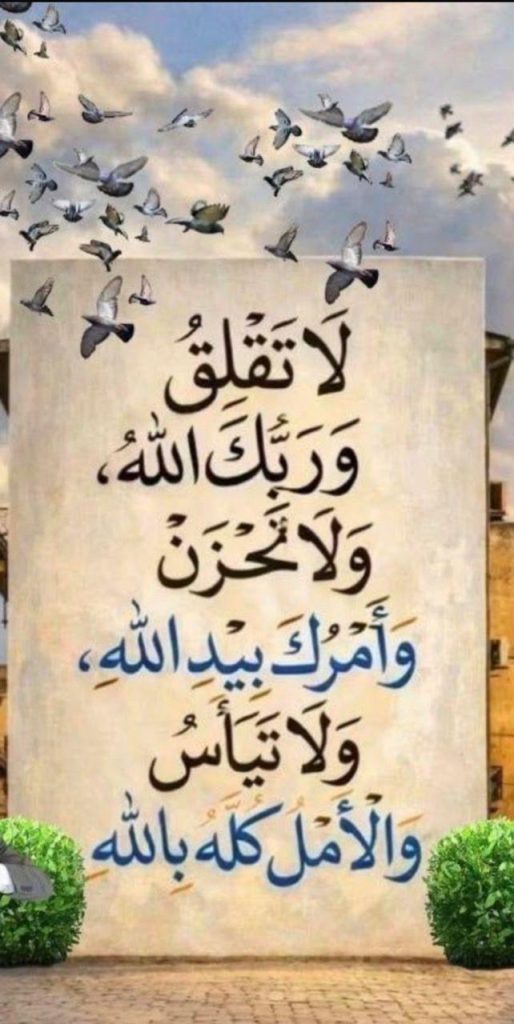 لَا تَقْلِقُ
وَرَبُّكَ اللهُ،
وَلَا تَحْزَنْ
وَأَمْرُكَ بِيْدِ اللهِ،
وَلَا تَيَأَسُ
وَالْأَمْلُ كُلَّهُ بِاللهِ